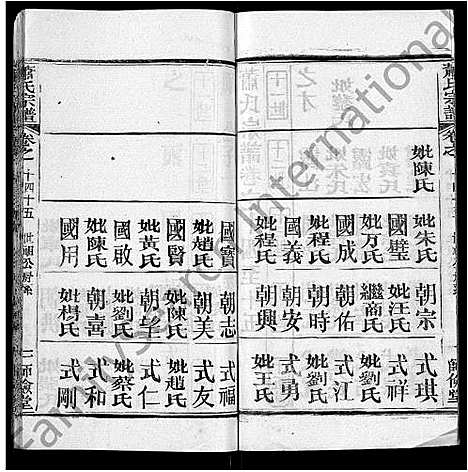 蕭氏宗譜
卷之一
妣陳氏
國璧
妣方氏
國成
妣程氏
國義
妣程氏
妣朱氏
朝宗
妣汪氏
繼商氏
朝佑
朝時
朝安
朝興
式琪
式祥
妣劉氏
式江
妣劉氏
式勇
妣王氏
國寶
妣趙氏
國賢
妣黃氏
國啟
妣陳氏
國用
朝志
朝美
妣陳氏
朝望
妣劉氏
朝喜
妣楊氏
式福
式友
妣趙氏
式仁
妣蔡氏
式和
式剛
蕭氏宗譜
卷之一
十四十五
師儉堂
FamilySearch International